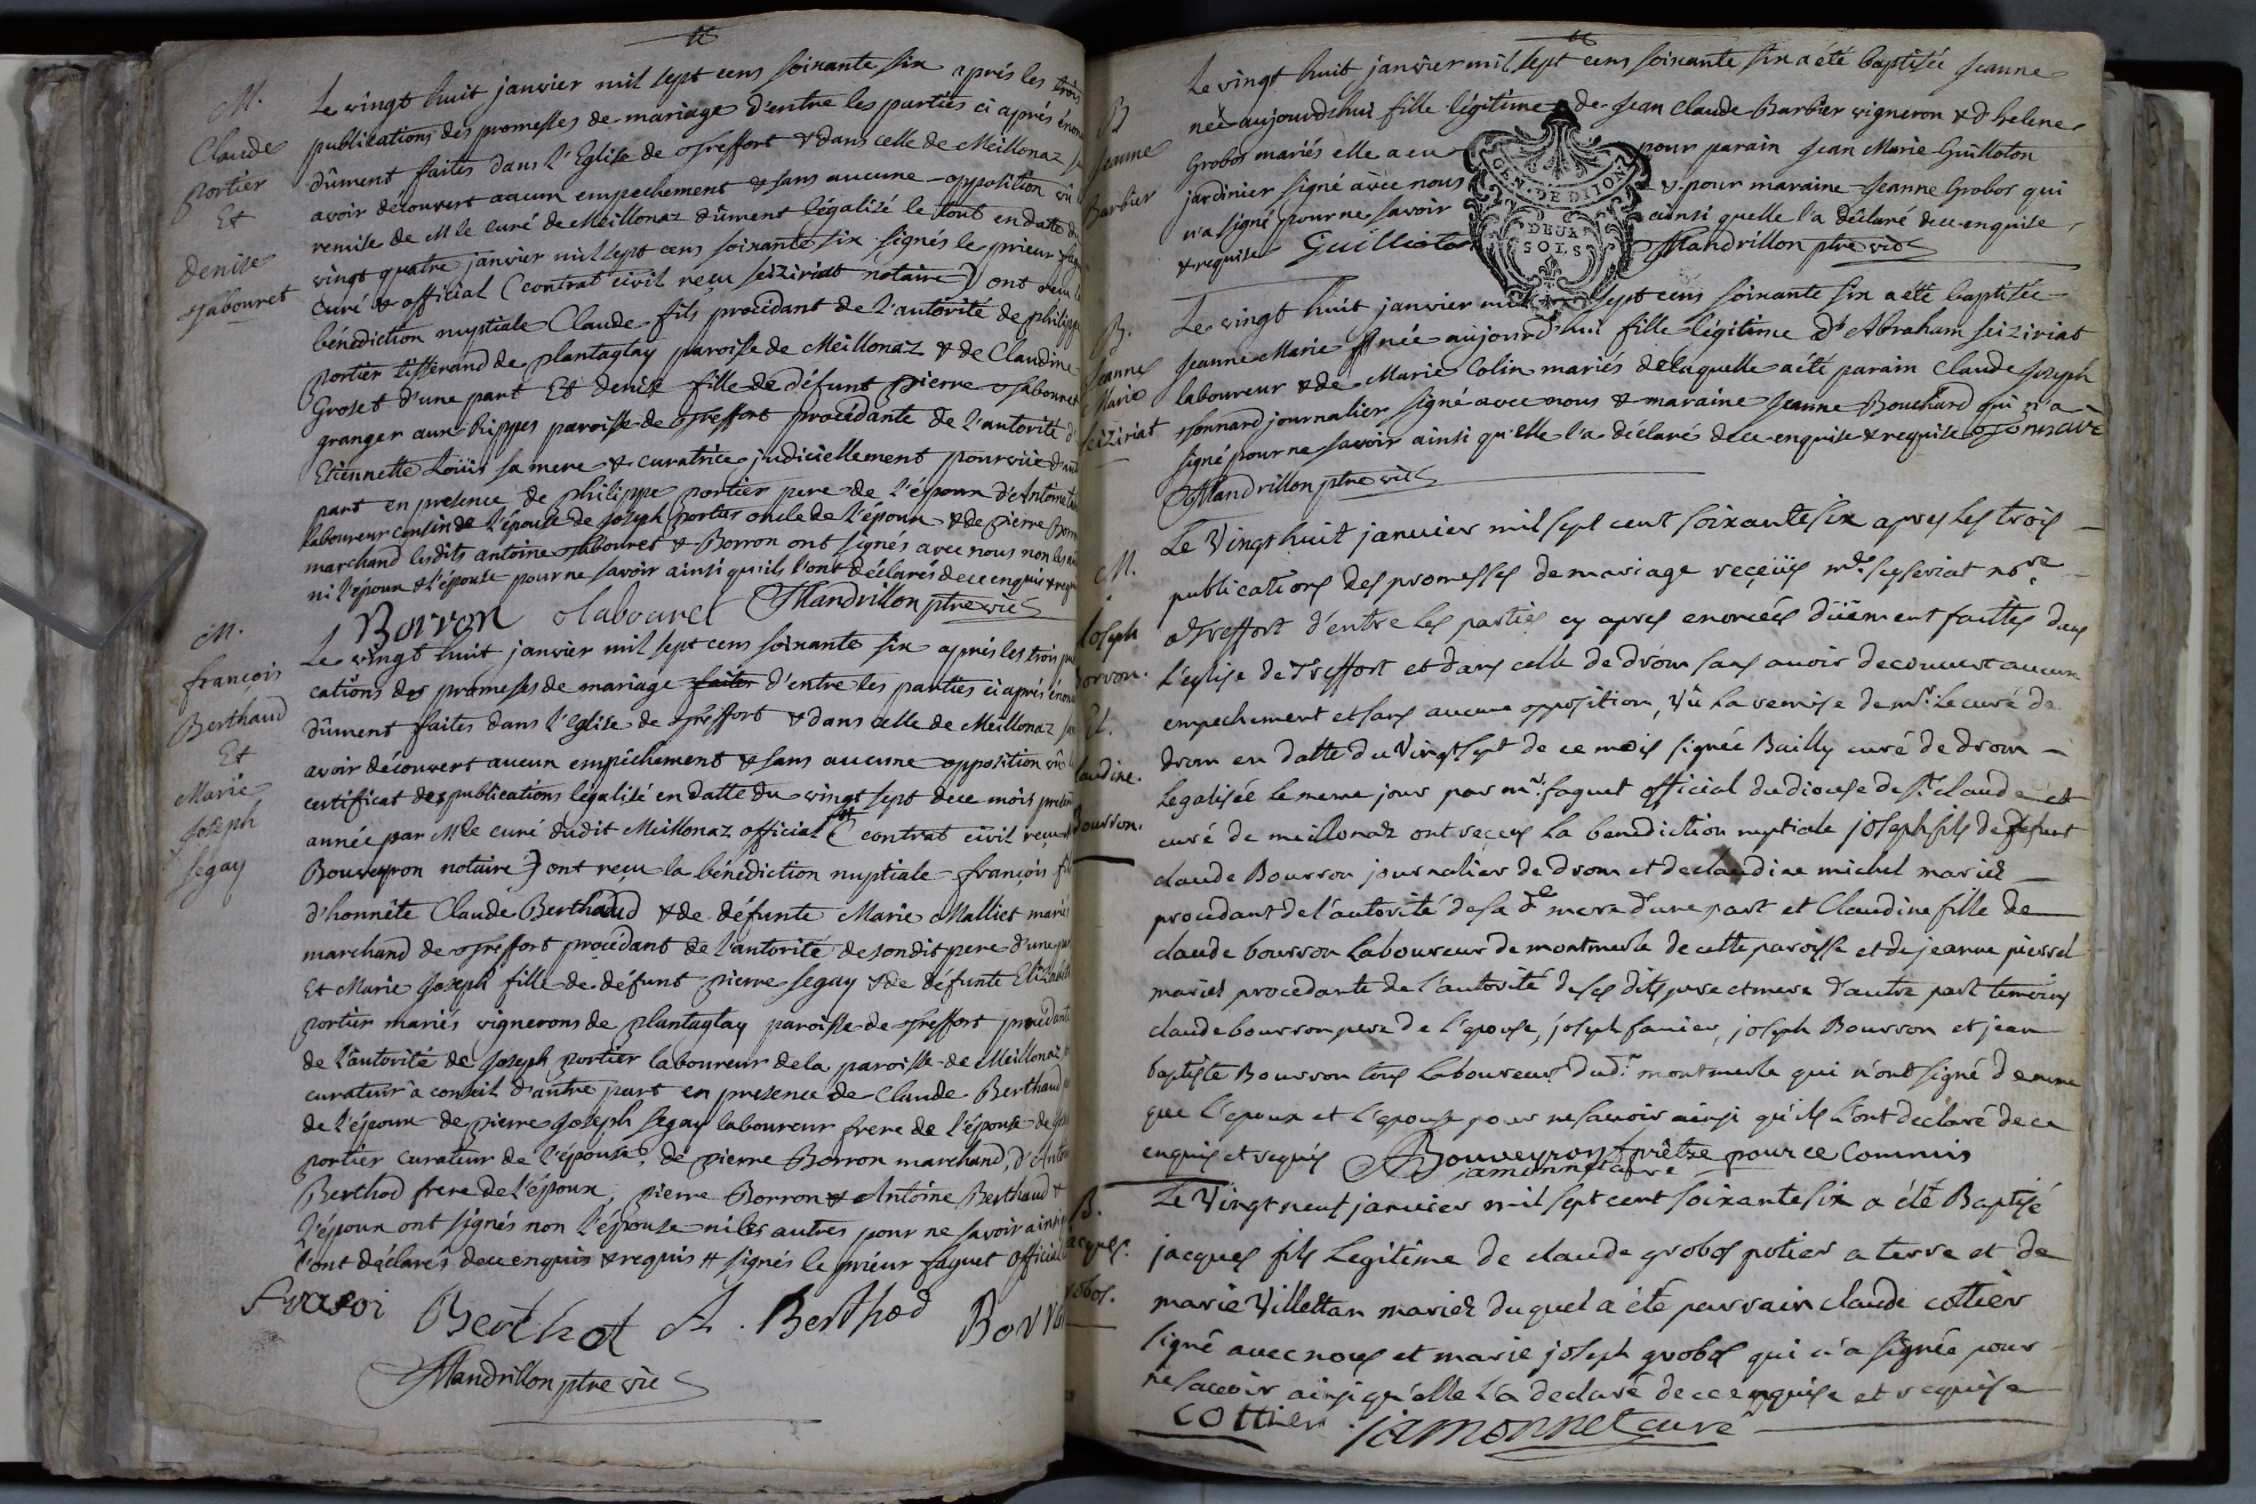 M.
Claude
portier
Et
denise
Tabouret
Le vingt huit janvier mil sept cens soixante six après les trois
publications des promesses de mariage d'entre les parties ci après énon
dûment faites dans l'Eglise de Treffort & dans celle de Meillonaz
avoir découvert aucun empechement & sans aucune opposition vû
remise de M le curé de Meillonaz dûment légalisé le tout en date du
vingt quatre janvier mil sept cens soixante six signés le prieur
curé & official (contrat civil reçu seiziriat notaire) ont reçu
bénédiction nuptiale Claude fils procédant de l'autorité de philippe
portier tisserand de plantaglay paroisse de Meillonaz & de Claudine
Groset d'une part Et denise fille de défunt pierre Tabouret
granger aux hippes paroisse de Treffort procédante de l'autorité d'
Etiennette Loüis sa mere & curatrice judiciellement pourvüe d'autre
part en presence de philippe portier pere de l'époux d'Antoine
laboureur cousin de l'épouse de joseph portier oncle de l'époux & de pierre Borron
marchand lesdits antoine Tabouret & Borron ont signés avec nous non les
ni l'époux & l'épouse pour ne savoir ainsi qu'ils l'ont déclarés de ce enquis & requis
Borron Tabouret Mandrillon ptre vic
M.
françois
Berthaud
Et
Marie
Joseph
segay
Le vingt huit janvier mil sept cens soixante six après les trois
cations des promeses de mariage faites d'entre les parties ci après énon
dûment faites dans l'Eglise de Treffort & dans celle de Meillonaz
avoir découvert aucun empêchement & sans aucune opposition vû
certificat des publications légalisé en datte du vingt sept de ce mois
année par M le curé dudit Meillonaz official # (contrat civil reçu
Bouveyron notaire) ont recu la bénédiction nuptiale françois
d'honnête Claude Berthaud & de défunte Marie Malliet mariés
marchand de Treffort procédant de l'autorité de sondit pere d'une
Et Marie Joseph fille de défunt pierre segay & de défunte Elizabeth
portier mariés vignerons de plantaglay paroisse de Treffort procédante
de l'autorité de joseph portier laboureur de la paroisse de Meillonaz
curateur à conseil d'autre part en presence de Claude Berthaud
de l'époux de pierre joseph segay laboureur frere de l'épouse de
portier curateur de l'épouse, de pierre Borron marchand, d'Antoine
Berthod frere de l'époux, pierre Borron & Antoine Berthaud &
l'époux ont signés non l'épouse ni les autres pour ne savoir ainsi
l'ont déclarés de ce enquis & requis # signés le prieur faguet official
Fransoi Berthot A. Berthod Borron
Mandrillon ptre vic
B
Jeanne
Barbier
Le vingt huit janvier mil sept cens soixante six a été baptisée Jeanne
née aujourdehui fille légitime de Jean claude Barbier vigneron & d'helene
Grobos mariés elle a eu pour parain Jean Marie Guilloton
jardinier signé avec nous & pour maraine Jeanne Grobos qui
n'a signé pour ne savoir ainsi quelle l'a déclaré de ce enquise
& requise Guillioton Mandrillon ptre vic
GEN. DE DIJON
DEUX
SOLS
B.
Jeanne
Marie
seiziriat
Le vingt huit janvier mil sept cens soixante six a été baptisée
Jeanne Marie née aujourd'hui fille légitime d'Abraham seiziriat
laboureur & de Marie Colin mariés de laquelle a été parain Claude Joseph
Tonnard journalier signé avec nous & maraine Jeanne Bouchard qui n'a
signé pour ne savoir ainsi qu'elle l'a déclaré de ce enquise & requise
Mandrillon ptre vic
M.
Joseph
Borron.
Et.
laudine.
Bourson.
Le Vingt huit januier mil sept cent soixante six apres les trois
publications des promesses de mariage receües me seyseriat nore
a Treffort d'entre les parties cy apres enoncéés düement faittes dans
l'eglise de Treffort et dans celle de drom sans auoir decouuert aucun
empechement et sans aucune opposition, Vû la remise de mr. le curé de
drom en datte du Vingt sept de ce mois signée Bailly curé de drom
Legalisée le meme jour par mr. faguet official du diocese de st. claude et
curé de meillonaz ont receus la benediction nuptiale joseph fils de defunt
claude Bourson journalier de drom et de claudine michel mariés
procedant de l'autorité de sa de mere d'une part et Claudine fille de
claude bourson laboureur de montmerle de cette paroisse et de jeanne pierrel
mariés procedante de l'autorité de ses dits pere et mere d'autre part temoins
claude bourson pere de l'epouse, joseph famier, joseph Bourson et jean
baptiste Bourson tous laboureurs dudt. montmerle qui n'ont signé de meme
que l'epoux et l'epouse pour ne sauoir ainsi qu'ils l'ont declaré de ce
enquis et requis Bouveyron prêtre pour ce Commis
jamonnet curé
B.
acques.
robos.
Le Vingt neuf januier mil sept cent soixante six a été Baptisé
jacques fils Legitime de claude grobos potier a terre et de
marie Villettan mariés du quel a été parrain claude cottier
signé auec nous et marie joseph grobos qui n'a signée pour
ne sauoir ainsi qu'elle l'a declaré de ce enquise et requise
cottier jamonnet curé